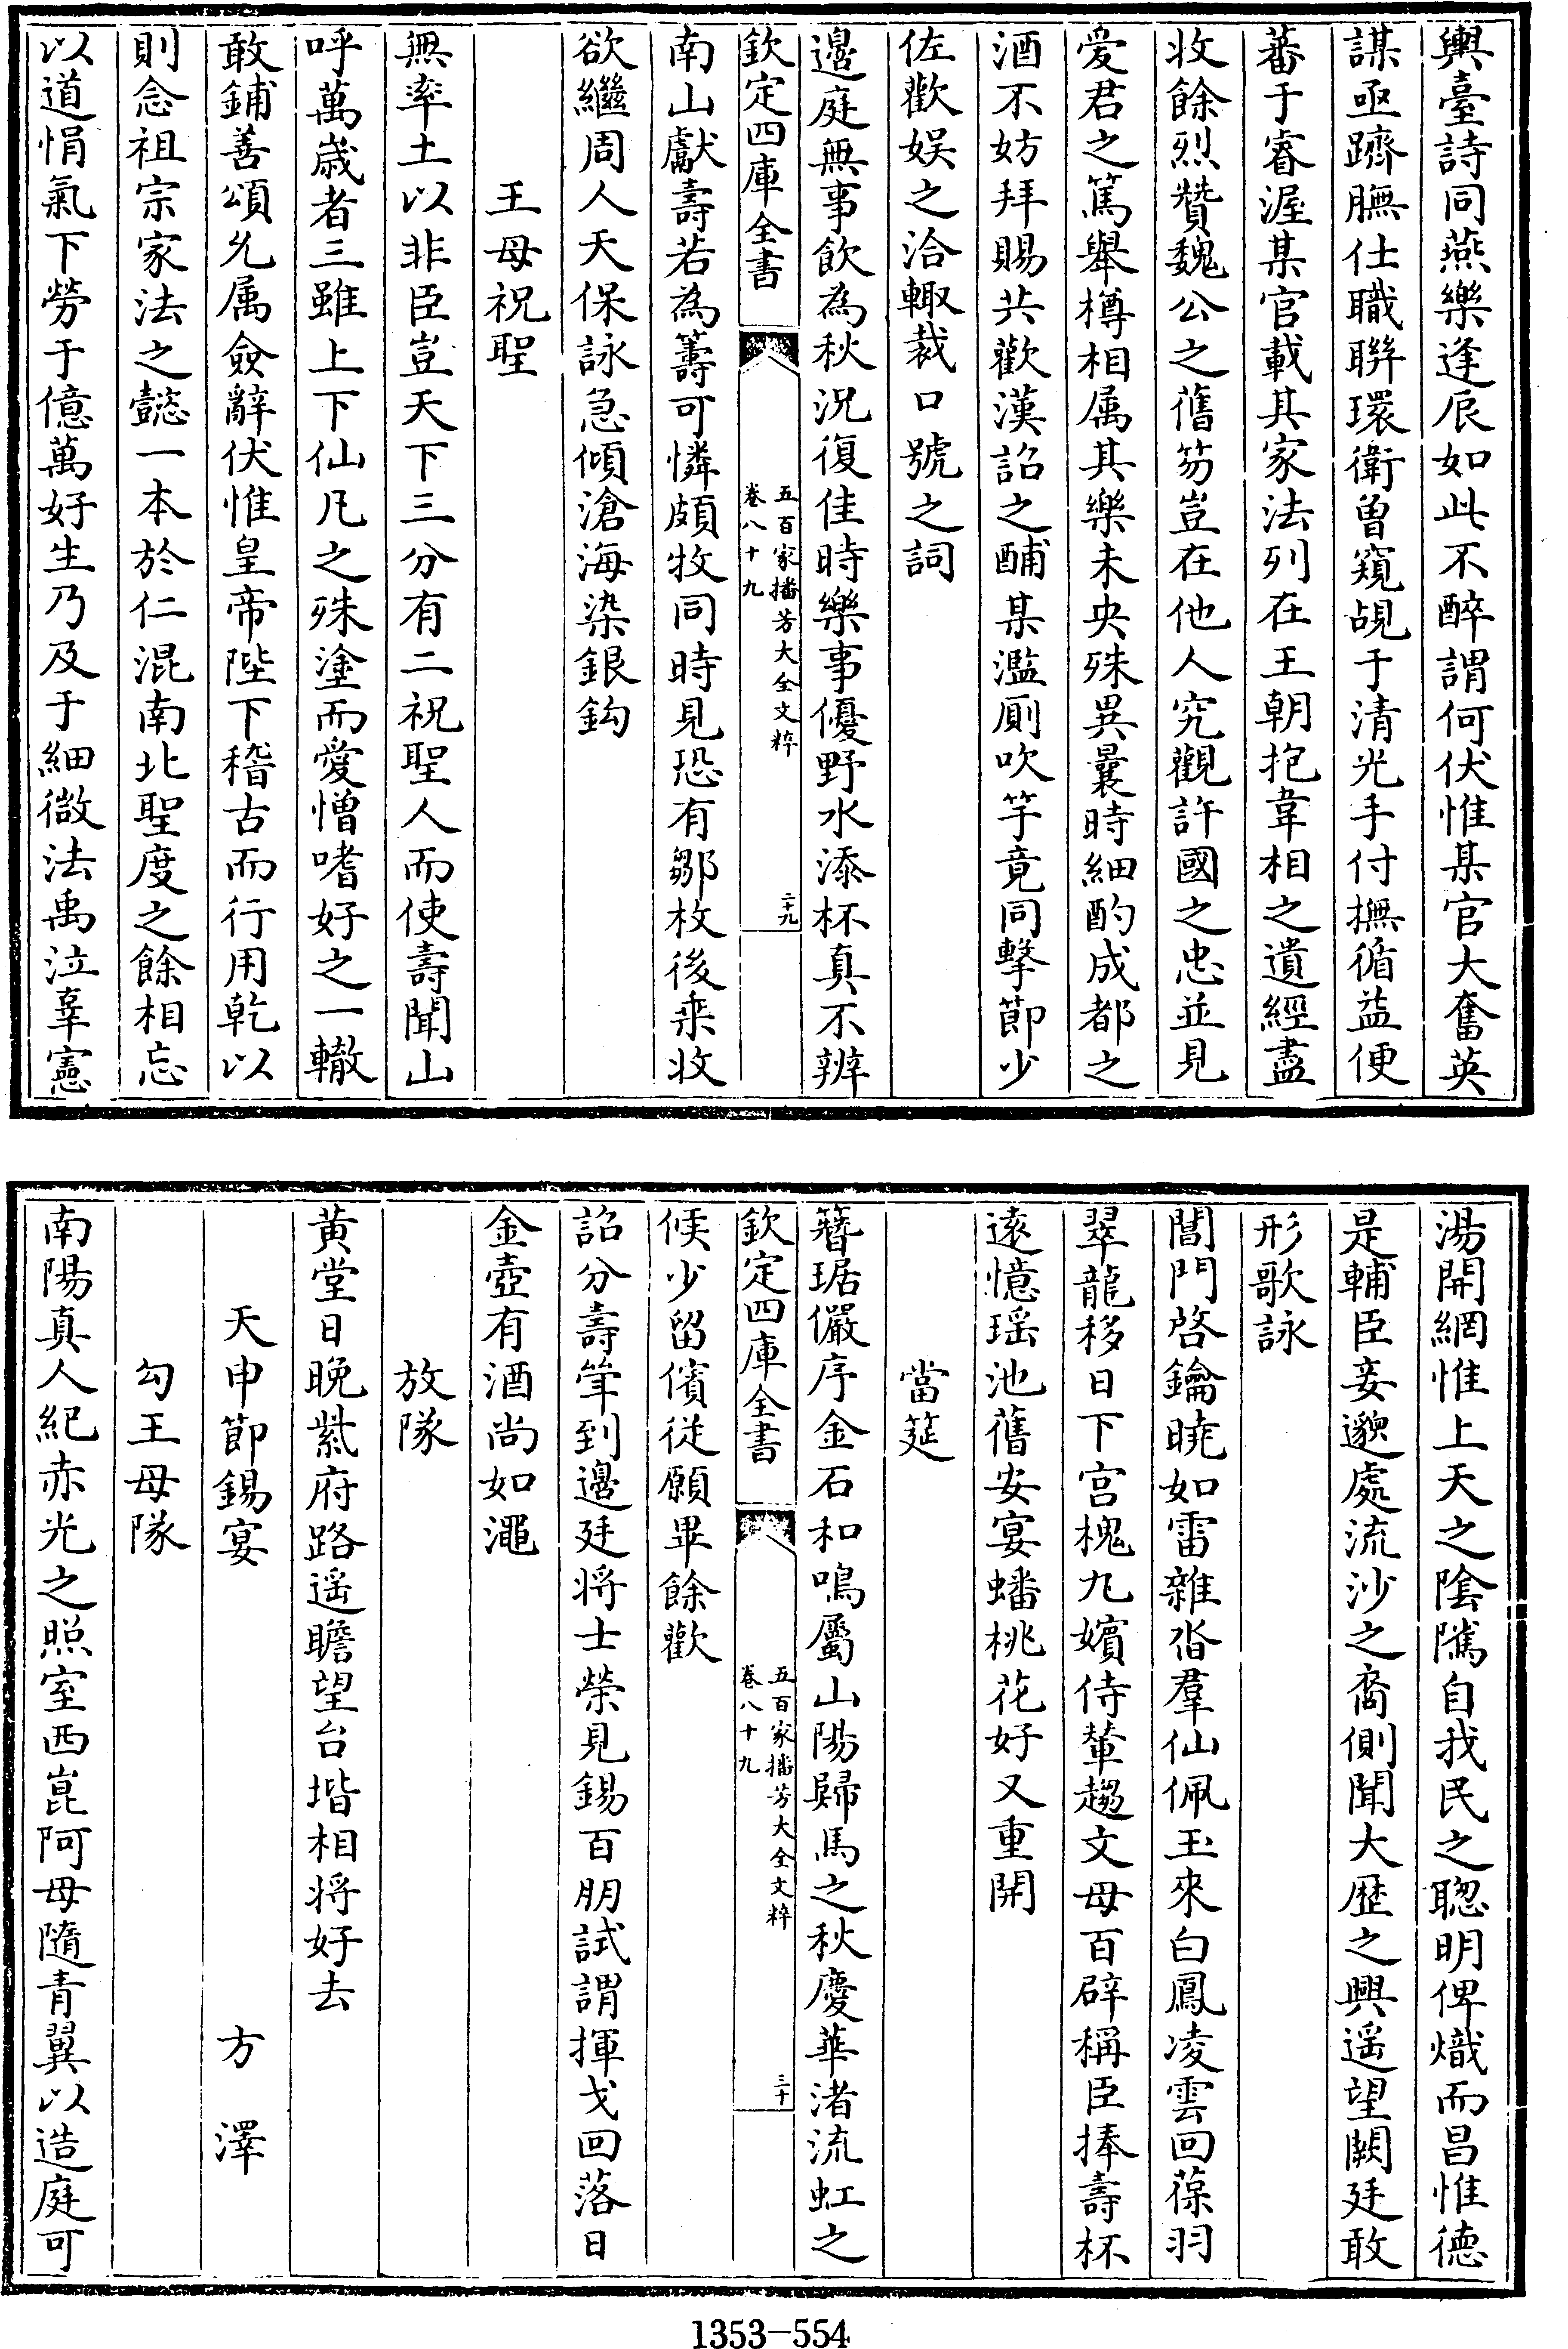 輿臺詩同燕樂逢辰如此不醉謂何伏惟某官大奮英
謀亟躋膴仕職聯環衛曾窺覘于清光手付撫循益便
蕃于睿渥某官載其家法列在王朝抱韋相之遺經盡
收餘烈贊魏公之舊笏豈在他人究觀許國之忠並見
愛君之篤舉樽相属其樂未央殊異曩時細酌成都之
酒不妨拜賜共歡漢詔之酺某濫廁吹竽竟同擊節少
佐歡娱之洽輙裁口號之詞
邊庭無事飲為秋况復佳時樂事優野水添杯真不辨
欽定四庫全書
五百家播芳大全文粹
卷八十九
二十九
南山獻壽若為籌可憐頗牧同時見恐有鄒枚後乘收
欲繼周人天保詠急傾滄海染銀鈎
王母祝聖
無率土以非臣豈天下三分有二祝聖人而使壽聞山
呼萬歲者三雖上下仙凡之殊塗而愛憎嗜好之一轍
敢鋪善頌允属僉辭伏惟皇帝陛下稽古而行用乾以
則念祖宗家法之懿一本於仁混南北聖度之餘相忘
以道悁氣下勞于億萬好生乃及于細微法禹泣辜憲
湯開網惟上天之陰隲自我民之聰明俾熾而昌惟德
是輔臣妾邈處流沙之裔側聞大歴之興遥望闕廷敢
形歌詠
閶門啓鑰曉如雷雜沓羣仙佩玉來白鳳凌雲回葆羽
翠龍移日下宫槐九嬪侍輦趨文母百辟稱臣捧壽杯
遠憶瑶池舊安宴蟠桃花好又重開
當筵
簪琚儼序金石和鳴屬山陽歸馬之秋慶華渚流虹之
欽定四庫全書
五百家播芳大全文粹
卷八十九
三十
候少留儐從願畢餘歡
詔分壽斚到邊廷将士榮見錫百朋試謂揮戈回落日
金壺有酒尚如澠
放隊
黄堂日晚紫府路遥瞻望台堦相将好去
天申節錫宴 方澤
勾王母隊
南陽真人紀赤光之照室西崑阿母隨青翼以造庭可
1353-554